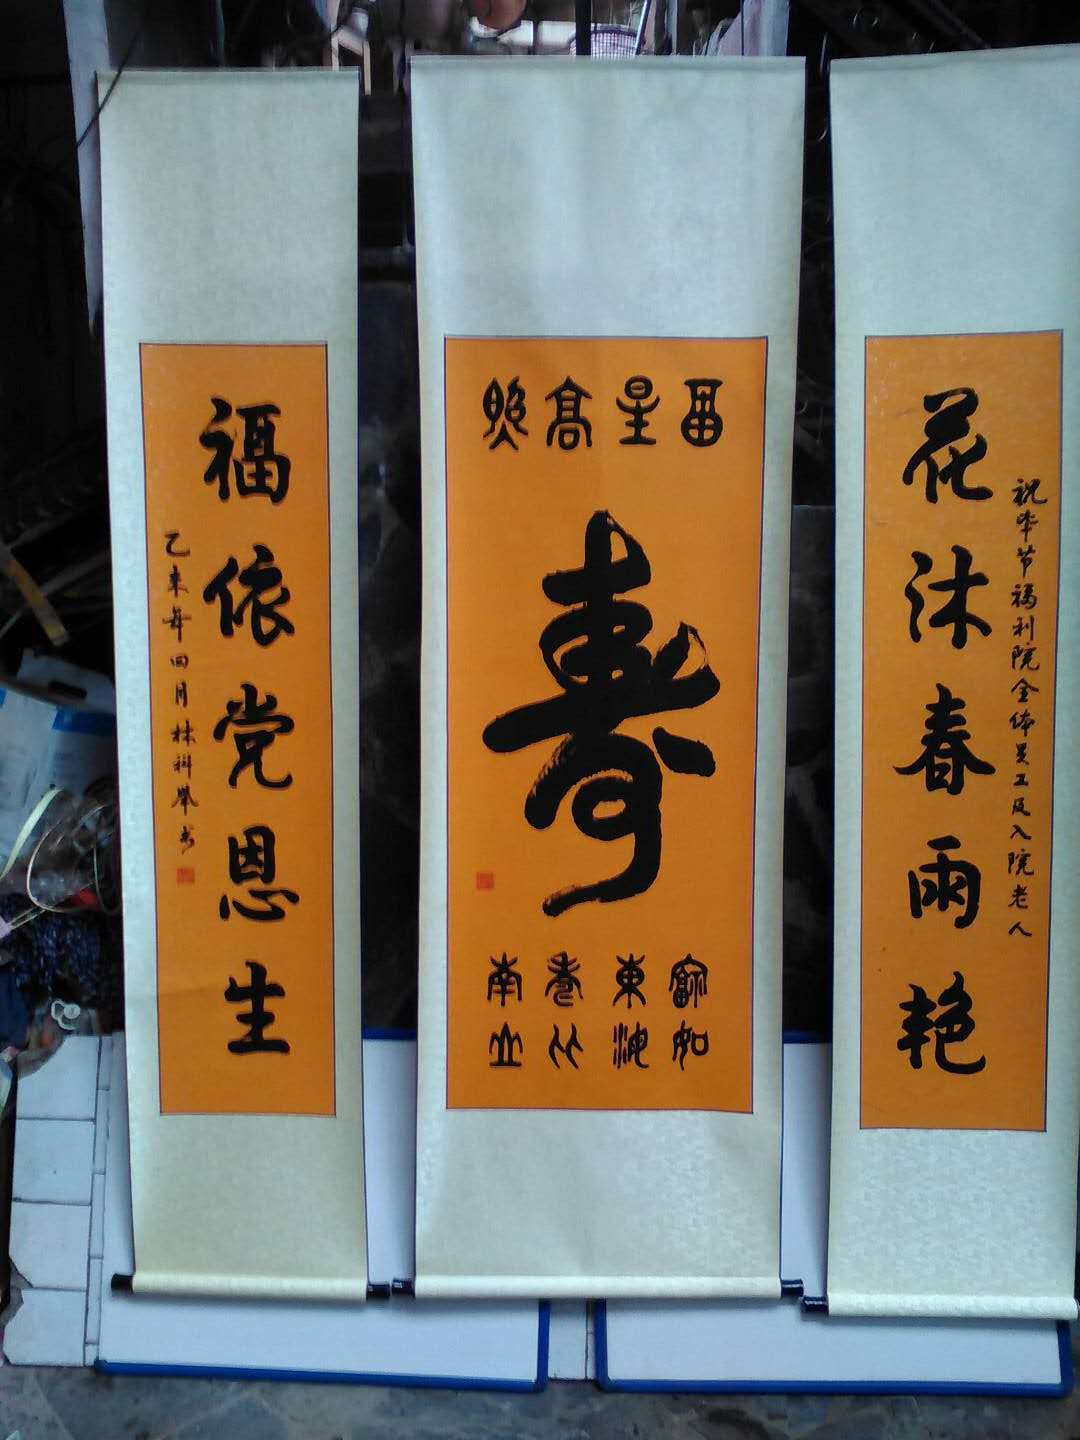 祝毕节福利院全体员工及入院老人
花沐春雨艳
畐星高照
寿
福如
東海
壽比
南山
福依党恩生
乙未年四月林科举书